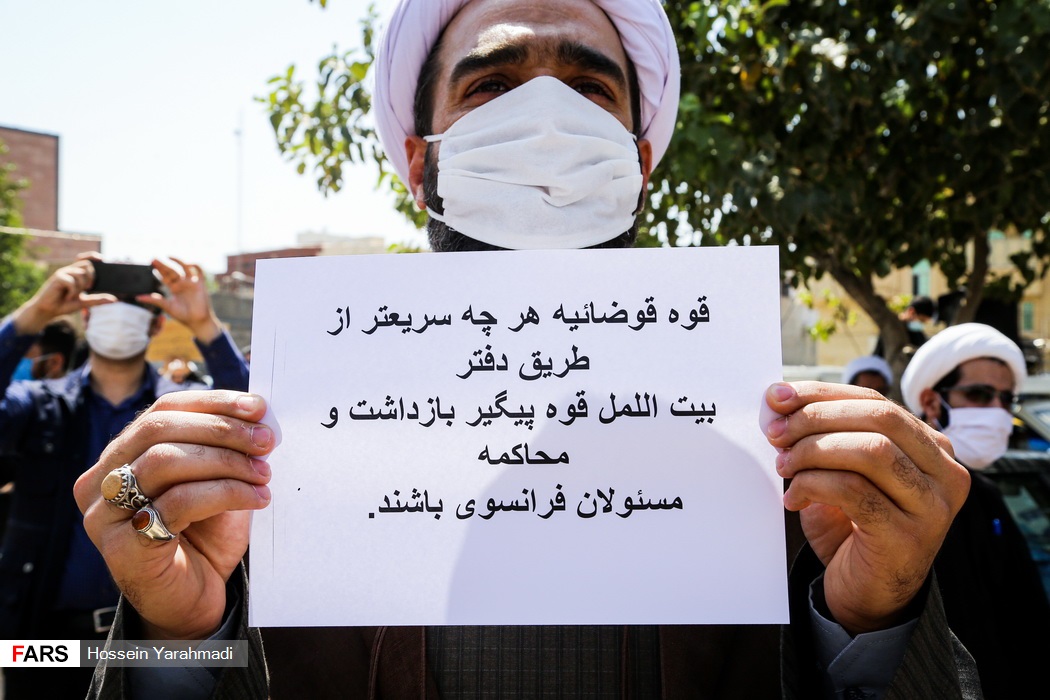 قوه قوضائیه هر چه سریعتر از
طریق دفتر
بیت اللمل قوه پیگیر بازداشت و
محاکمه
مسئولان فرانسوی باشند.
FARS Hossein Yarahmadi